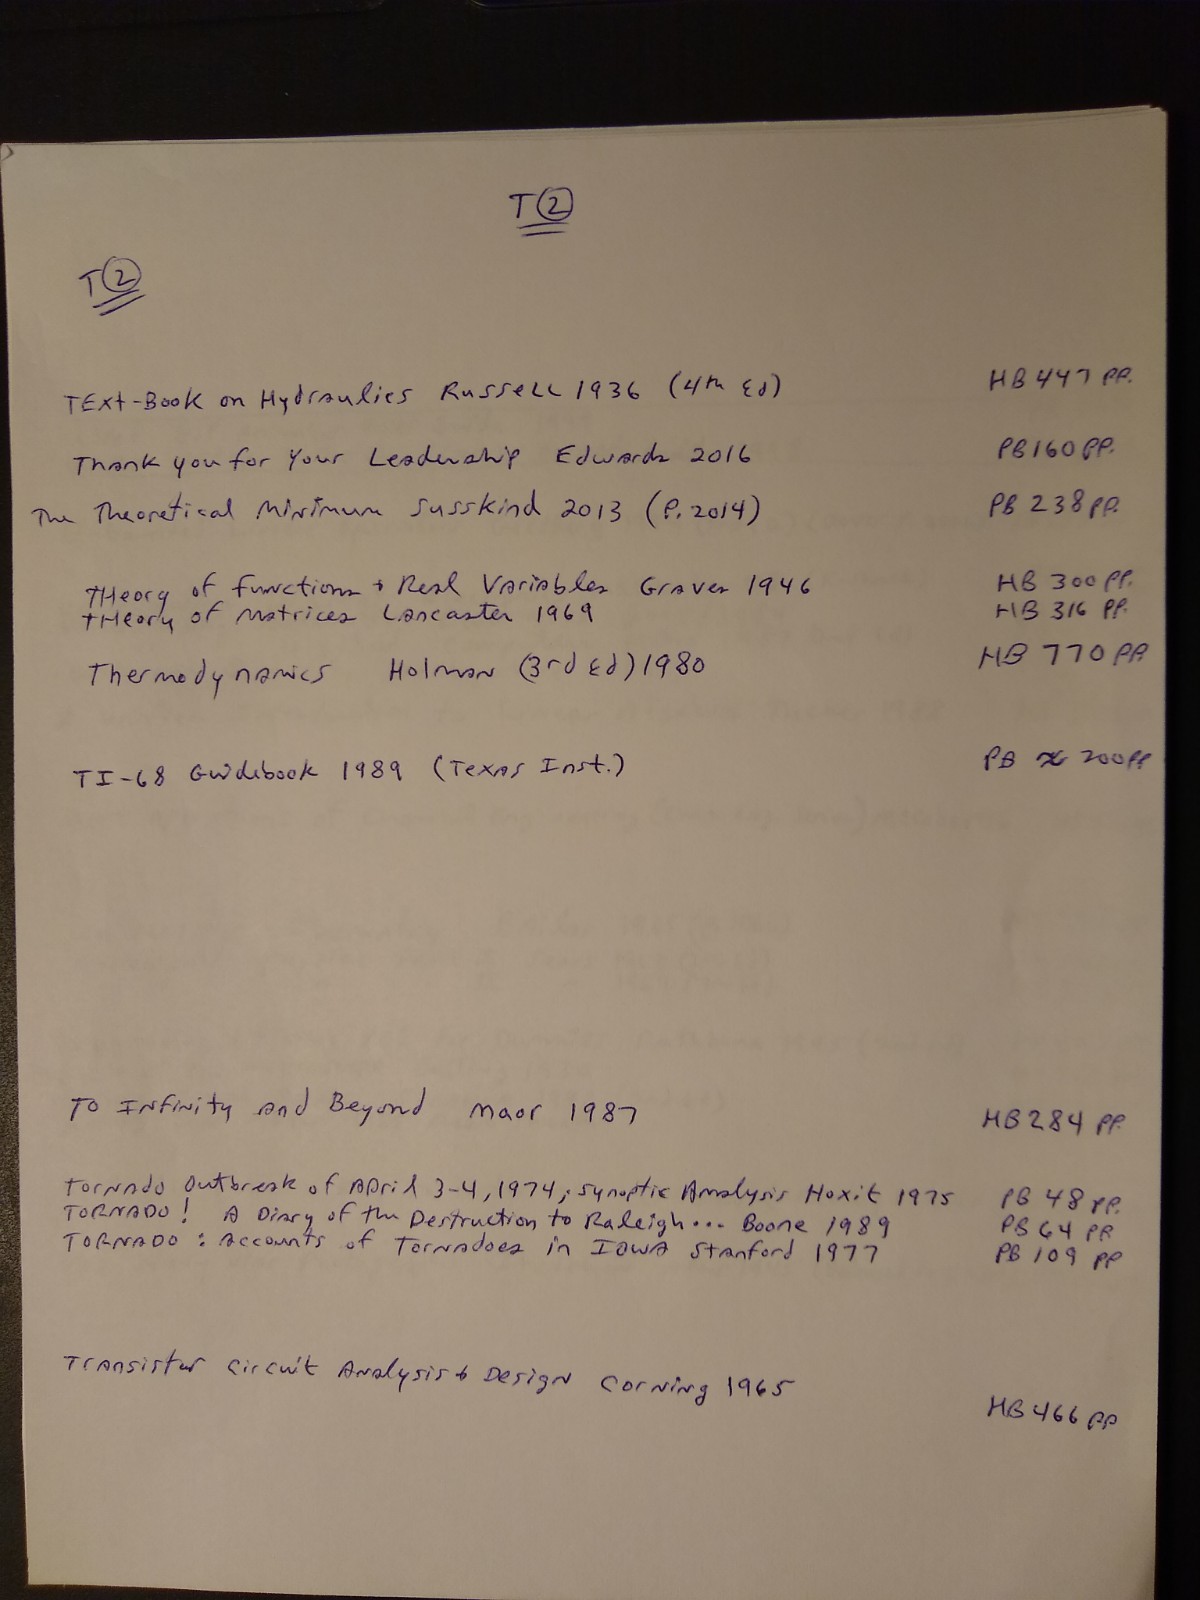 T②
T②
TExt-Book on Hydraulics Russell 1936 (4th Ed) HB 447 PP.
Thank you for Your Leadership Edwards 2016 PB 160 PP.
The Theoretical Minimum Susskind 2013 (P. 2014) PB 238 PP.
THeory of functions + Real Variables Graves 1946 HB 300 PP.
THeory of Matrices Lancaster 1969 HB 316 PP.
Thermodynamics Holman (3rd Ed) 1980 HB 770 PP
TI-68 Guidebook 1989 (Texas Inst.) PB ≈ 200 PP
To Infinity and Beyond Maor 1987 HB 284 PP.
Tornado Outbreak of April 3-4, 1974; Synoptic Analysis Hoxit 1975 PB 48 PP.
TORNADO! A Diary of the Destruction to Raleigh... Boone 1989 PB 64 PP
TORNADO: Accounts of Tornadoes in IOWA Stanford 1977 PB 109 PP
Transistor Circuit Analysis + Design Corning 1965 HB 466 PP